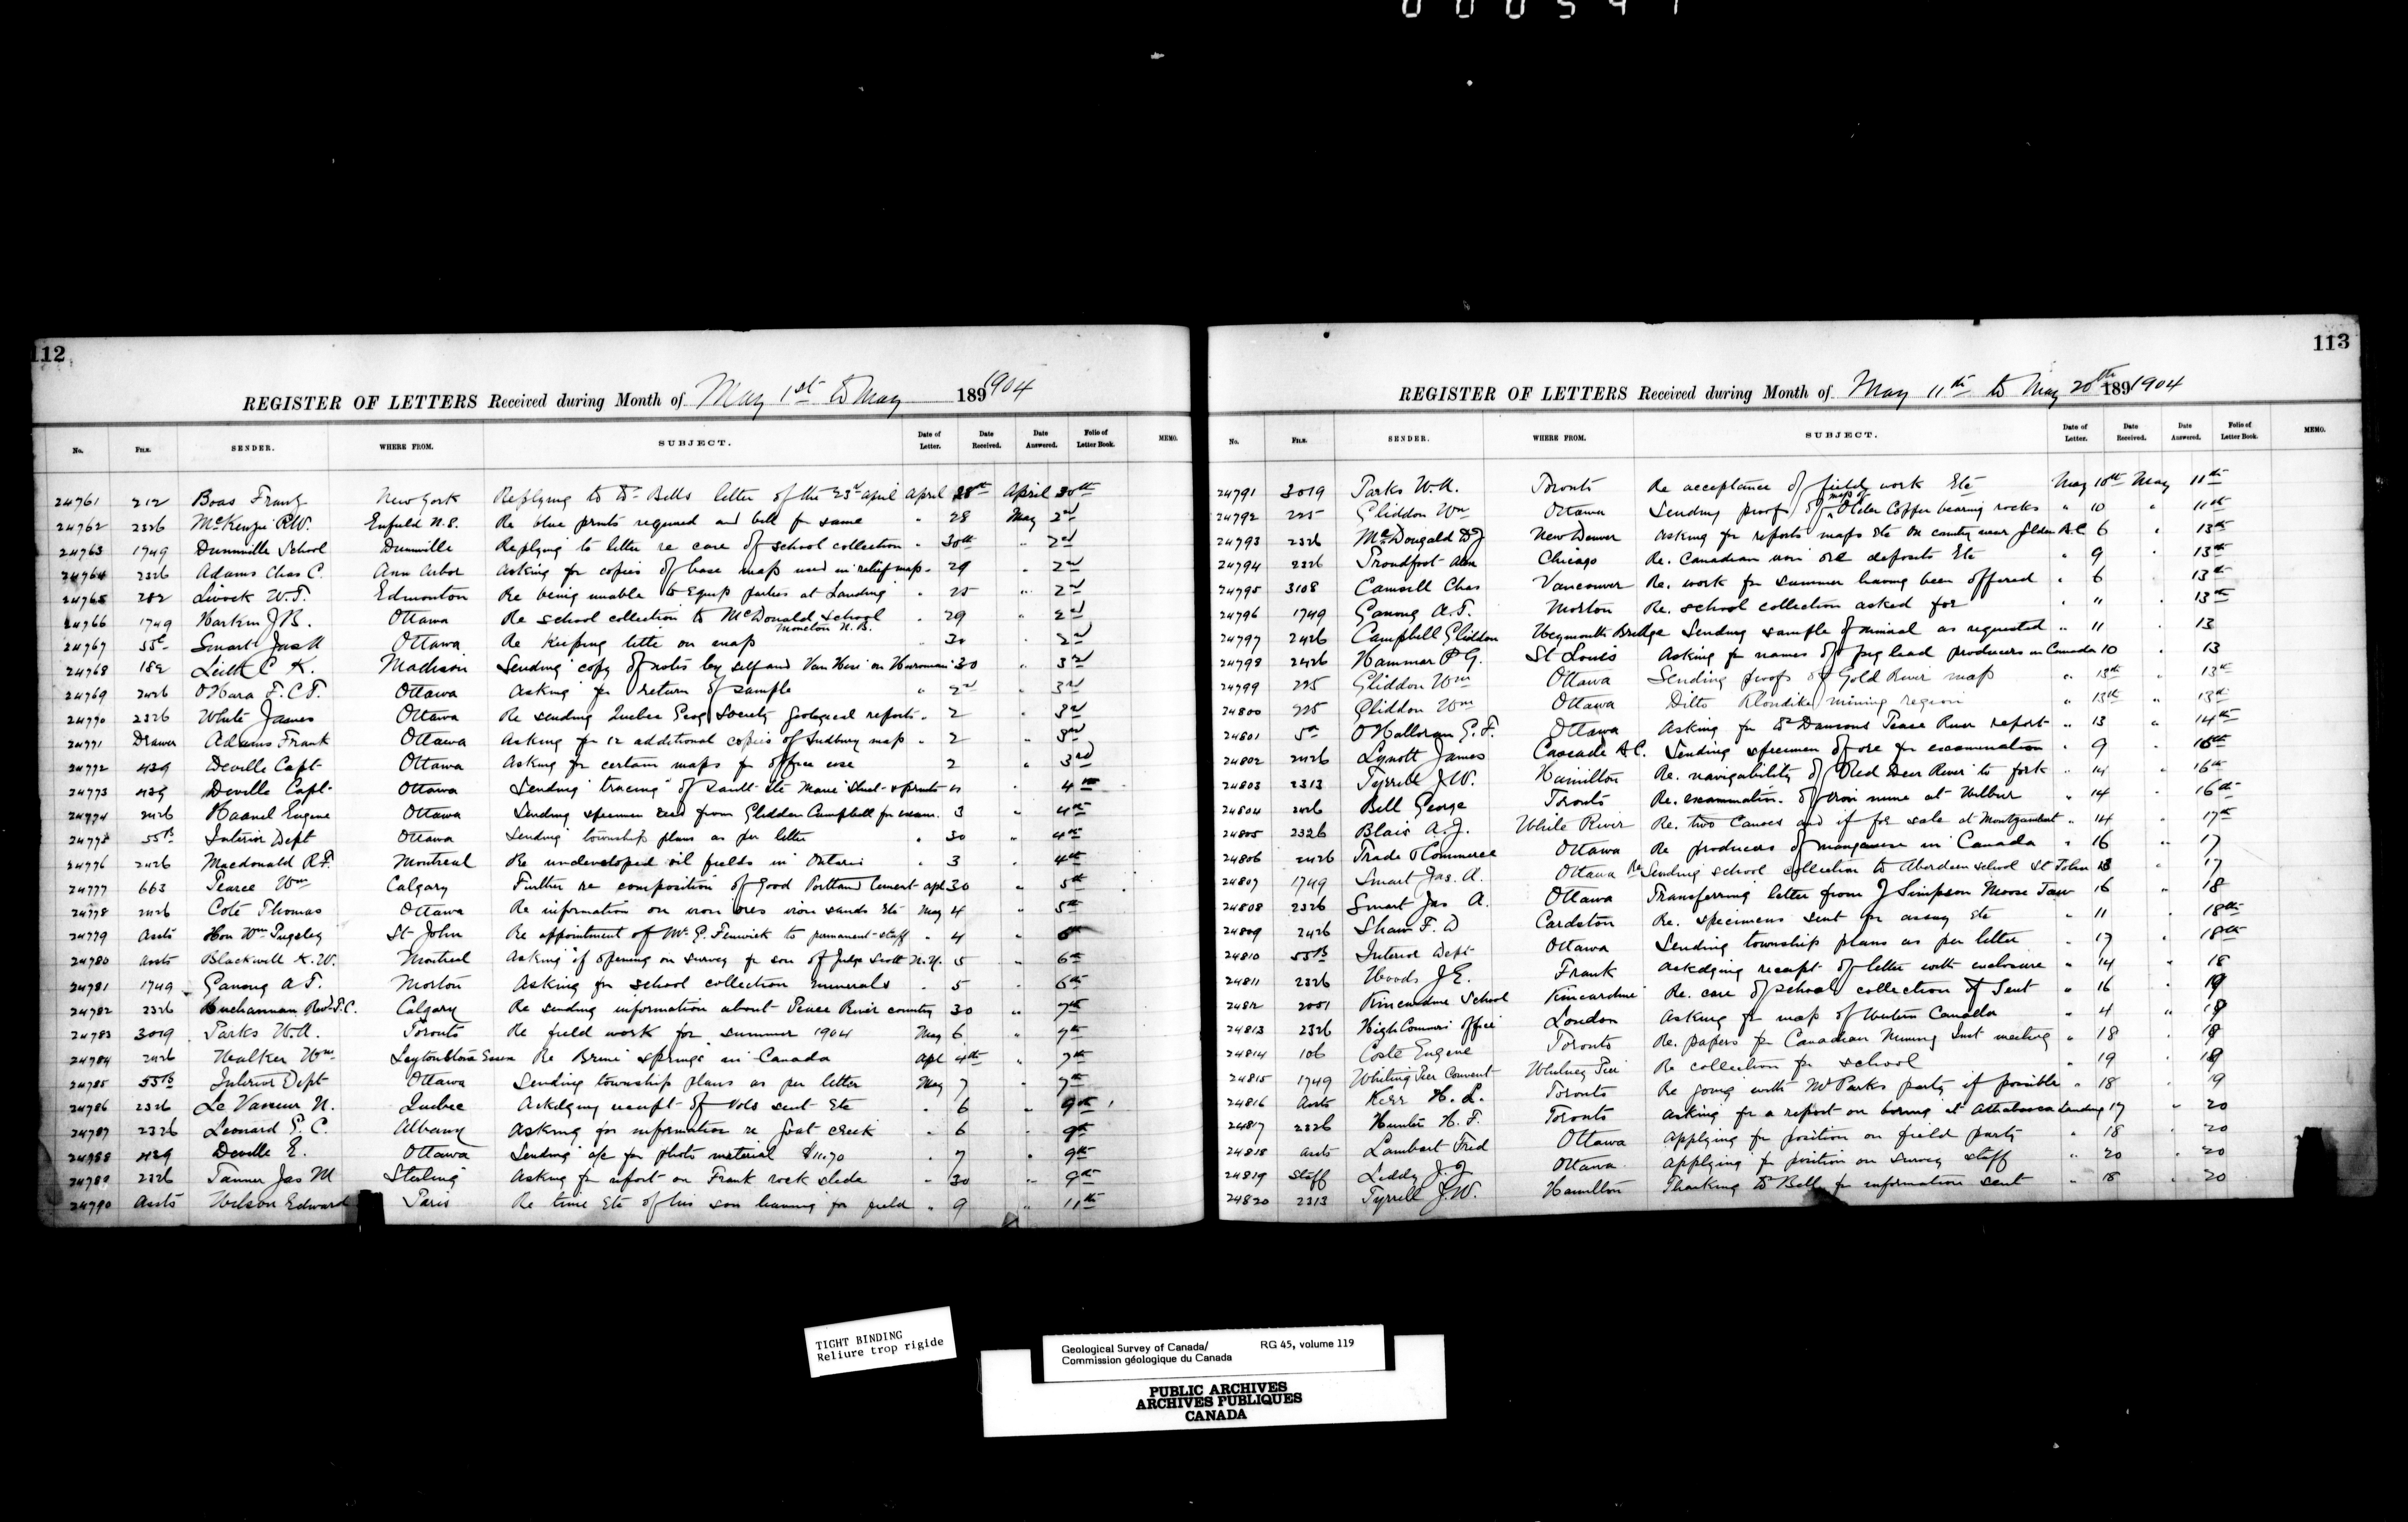 000597
112
REGISTER OF LETTERS Received during Month of May 1st to May 1891904
No. FILE. SENDER. WHERE FROM. SUBJECT. Date of Letter. Date Received. Date Answered. Folio of Letter Book. MEMO.
24761 212 Boas Franz New York Replying to Dr Bells letter of the 23rd april April 28th April 30th
24762 2326 McKenzie R.W. Enfield N.S. Re blue prints required and bill for same " 28 May 2nd
24763 1749 Dunnville School Dunnville Replying to letter re care of school collection " 30th " 2nd
24764 2326 Adams Chas C. Ann Arbor Asking for copies of base map used in relief map " 29 " 2nd
24765 282 Livock W.T. Edmonton Re being unable to Equip parties at Landing " 25 " 2nd
24766 1749 Harkin J B. Ottawa Re school collection to McDonald School Moncton N.B. " 29 " 2nd
24767 Smart Jas A Ottawa Re Keeping title on map " 30 " 2nd
24768 182 Leith C K. Madison Sending copy of notes by self and Van Hise on " 30 " 3rd
24769 2426 OHara F.C.T. Ottawa Asking for return of sample " 2nd " 3rd
24770 2326 White James Ottawa Re sending Quebec Geog Society Geological reports " 2 " 3rd
24771 Drawer Adams Frank Ottawa Asking for 12 additional copies of Sudbury map " 2 " 3rd
24772 429 Deville Capt Ottawa Asking for certain maps for office use 2 " 3rd
24773 429 Deville Capt Ottawa Sending tracing of Sault Ste Marie Sheet & prints " 4th
24774 2426 Haanel Eugene Ottawa Sending specimen recd from Gliddon Campbell for exam. 3 " 4th
24775 55B Interior Dept Ottawa Sending township plans as per letter " 30 " 4th
24776 2426 Macdonald R.F. Montreal Re undeveloped oil fields in Ontario " 3 " 4th
24777 663 Pearce Wm Calgary Further re composition of Good Portland Cement apl 30 " 5th
24778 2426 Coté Thomas Ottawa Re information on iron ores iron sands Etc May 4 " 5th
24779 Assts Hon Wm Pugsley St John Re appointment of Mr G. Fenwick to permanent staff " 4 " 6th
24780 Assts Blackwell K.W. Montreal Asking if opening on survey for son of Judge Scott N.Y. 5 " 6th
24781 1749 Ganong A T. Morton Asking for school collection minerals " 5 " 6th
24782 2326 Buchannan Revd Calgary Re sending information about Peace River country 30 " 7th
24783 3019 Parks W.A. Toronto Re field work for summer 1904 May 6 " 7th
24784 2426 Walker Wm Leytonstone Essex Re Brine springs in Canada Apl 4th " 7th
24785 55B Interior Dept Ottawa Sending township plans as per letter May 7 " 7th
24786 2326 Le Vasseur N. Quebec Ackdging receipt of Vols sent Etc " 6 " 9th
24787 2326 Leonard G. C. Albany Asking for information re Goat Creek " 6 " 9th
24788 429 Deville E. Ottawa Sending a/c for photo material $11.70 " 7 " 9th
24789 2326 Tanner Jas M Sterling Asking for report on Frank rock slide " 30 " 9th
24790 Assts Wilson Edward Paris Re time Etc of his son leaving for field " 9 " 11th
113
REGISTER OF LETTERS Received during Month of May 11th to May 20th 1891904
No. FILE. SENDER. WHERE FROM. SUBJECT. Date of Letter. Date Received. Date Answered. Folio of Letter Book. MEMO.
24791 3019 Parks W.A. Toronto Re acceptance of field work Etc May 10th May 11th
24792 225 Gliddon Wm Ottawa Sending proof of map of Older Copper bearing rocks " 10 " 11th
24793 2326 McDougald D J New Denver Asking for reports maps Etc on country near Golden B.C. 6 " 13th
24794 2326 Proudfoot Chicago Re. Canadian iron ore deposits Etc " 9 " 13th
24795 3108 Camsell Chas Vancouver Re. work for summer having been offered " 6 " 13th
24796 1749 Ganong A.T. Morton Re. school collection asked for " 11 " 13th
24797 2426 Campbell Gliddon Weymouth Bridge Sending sample of mineral as requested " 11 " 13
24798 2426 Hammar P G. St Louis Asking for names of pig lead producers in Canada 10 " 13
24799 225 Gliddon Wm Ottawa Sending proofs of Gold River map " 13th " 13th
24800 225 Gliddon Wm Ottawa Ditto Klondike mining region " 13th " 13th
24801 5a OHalloran G.F. Ottawa Asking for Dr Dawsons Peace River report " 13 " 14th
24802 2426 Lynott James Cascade B.C. Sending specimen of ore for examination " 9 " 16th
24803 2313 Tyrrell J.W. Hamilton Re. navigability of Red Deer River to fork " 14 " 16th
24804 2426 Bell George Toronto Re. examination of iron mine at Wilbur " 14 " 16th
24805 2326 Blair A.J. White River Re. two Canoes and if for sale at Montizambert " 14 " 17th
24806 2426 Trade & Commerce Ottawa Re producers of manganese in Canada " 16 " 17
24807 1749 Smart Jas. A. Ottawa Re Sending school collection to Aberdeen school St John 13 " 17
24808 2326 Smart Jas A. Ottawa Transferring letter from J Simpson Moose Jaw 16 " 18
24809 2426 Shaw F. D Cardston Re. specimens sent for assay Etc " 11 " 18th
24810 55B Interior Dept Ottawa Sending township plans as per letter " 17 " 18th
24811 2326 Woods J.E. Frank Ackdging receipt of letter with enclosure " 14 " 18
24812 2051 Kincardine School Kincardine Re. care of school collection if Sent " 16 " 19
24813 2326 High Commis Office London Asking for map of Western Canada " 4 " 19
24814 106 Coste Eugene Toronto Re. papers for Canadian Mining Inst meeting " 18 " 19
24815 1749 Whitney Pier Convent Whitney Pier Re collection for school " 19 " 19
24816 Assts Kerr H. L. Toronto Re going with Mr Parks party if possible " 18 " 19
24817 2326 Hunter H. F. Toronto Asking for a report on boring at Athabasca Landing 17 " 20
24818 Assts Lambart Fred Ottawa Applying for position on field party " 18 " 20
24819 Staff Liddy J. J Ottawa Applying for position on survey staff " 20 " 20
24820 2313 Tyrrell J.W. Hamilton Thanking Dr Bell for information sent " 18 " 20
TIGHT BINDING
Reliure trop rigide
Geological Survey of Canada/ RG 45, volume 119
Commission géologique du Canada
PUBLIC ARCHIVES
ARCHIVES PUBLIQUES
CANADA